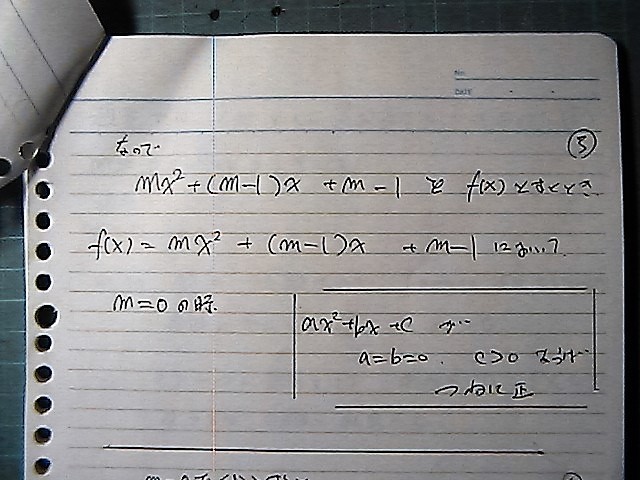 No.
DATE
なので
⑤
mx²+(m-1)x +m-1 を f(x) とおくとき
f(x) = mx² + (m-1)x + m-1 において
m=0 の時.
ax²+bx+c が
a=b=0. c>0 ならば
つねに正